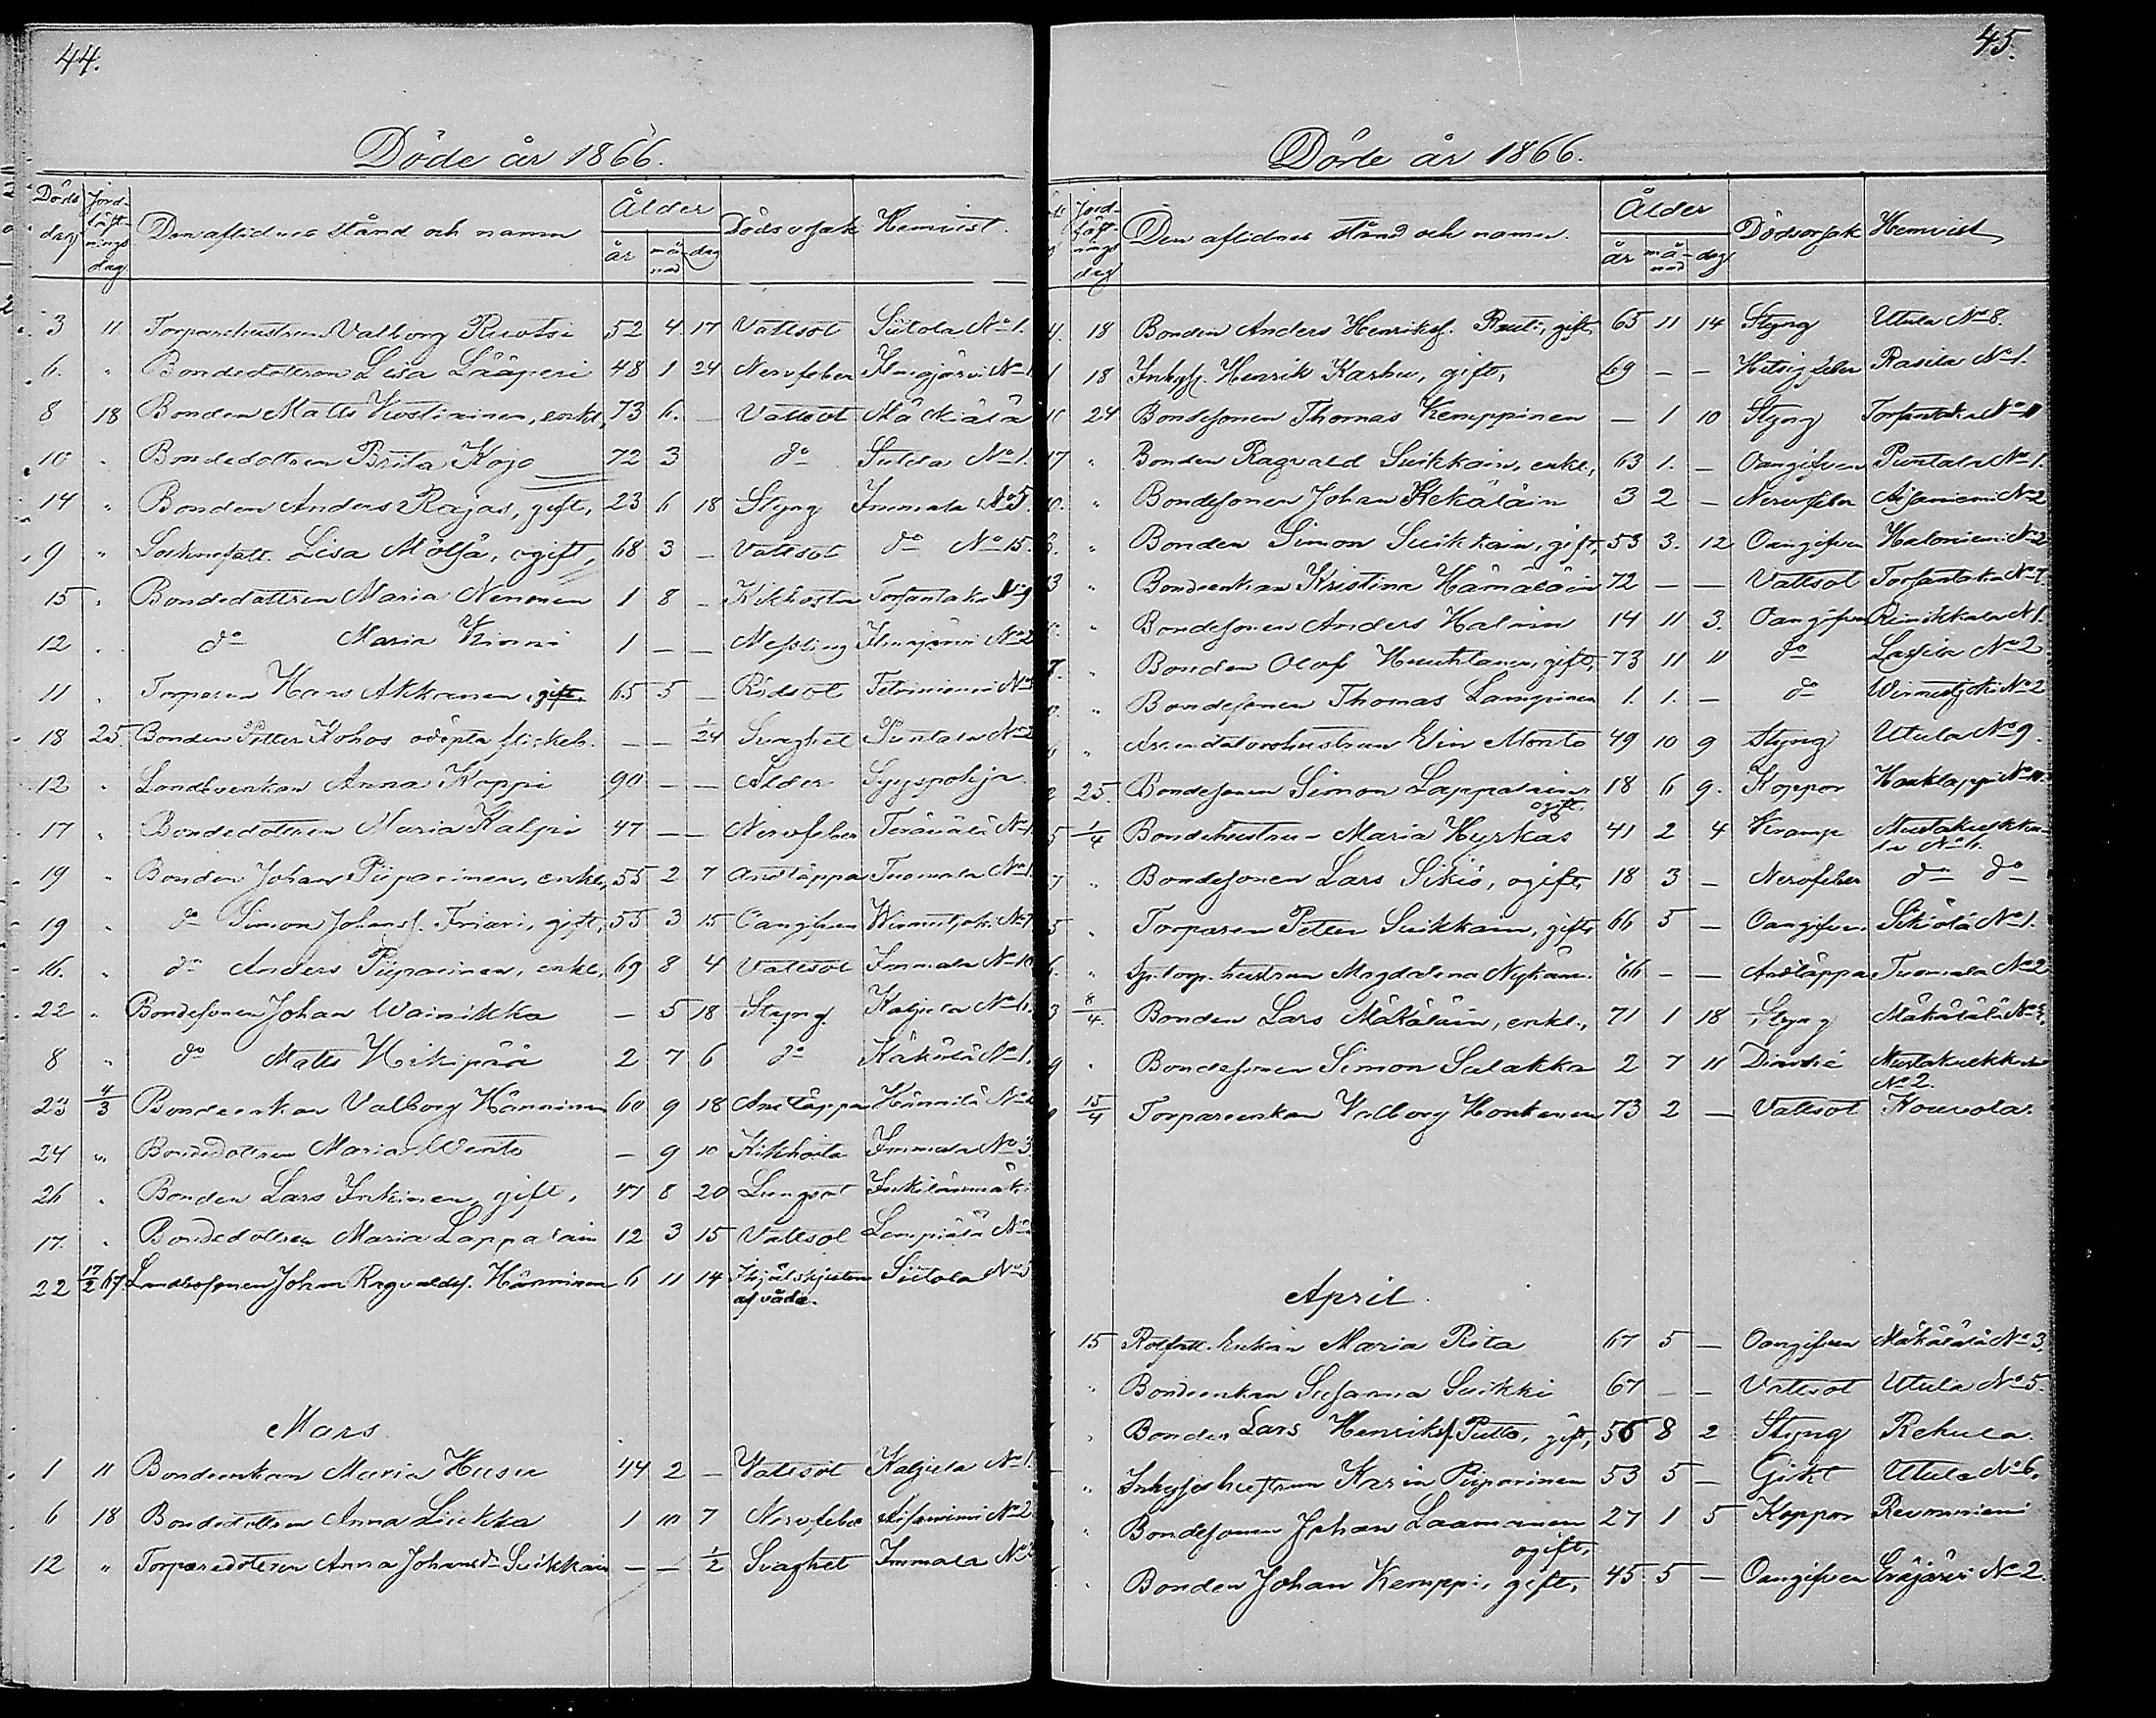 44.
Döde år 1866.
Döds dag Jord-fäst-nings dag Den aflidnes stånd och namn Ålder år må-nad dag Dödsorsak Hemvist.
3 11 Torparehustrun Valborg Ruotsi 52 4 17 Vattsot Siitola No 1.
6. " Bondedottren Lisa Lääperi 48 1 24 Nervfeber Ilmajärvi No 1
8 18 Bonden Matts Kostiainen, enkl. 73 6. – Vattsot Mäckälä
10 " Bondedottren Brita Kojo 72 3 do No 1.
14 " Bonden Anders Rajas, gift, 23 6 18 Styng Immala No 5.
9 " Lisa Möljä, ogift, 68 3 – Vattsot do No 15.
15 " Bondedottren Maria Nenonen 1 8 – Kikhosta Torsantaka No 9
12 " do Maria Kinni 1 – – Messling Ilmajärvi No 2
11 " Torparen Hans Akkanen, gift. 65 5 – Rödsot
18 25. Bonden Petter Kohos odöpta flickeb. – – 1/24 Svaghet Puntala No 2
12 " Landboenkan Anna Koppi 90 – – Ålder Syyspohja
17 " Bondedottren Maria Kalpi 47 – – Nervfeber Teräsälä No 1
19 " Bonden Johan Piiparinen, enkl., 55 2 7 Andtäppa Tuomala No 1
19 " do Simon Johanss. Friari, gift, 55 3 15 Oangifven Wirmutjoki No 1
16. " do Anders Piiparinen, enkl., 69 8 4 Vattsot Immala No 10
22 " Bondesonen Johan Wainikka – 5 18 Styng. Kaljula No 1.
8 " do Matts Hikipää 2 7 6 do Käkölä No 1.
23 4/3 Bondeenkan Valborg Hänninen 60 9 18 Andtäppa Hännilä No 2
24 " Bondedottren Maria Wento – 9 10 Kikhosta Immala No 3
26 " Bonden Lars Inkinen, gift, 47 8 20 Lungsot Inkilänmäki
17. " Bondedottren Maria Lappalain 12 3 15 Vattsot Lempiälä No
22 17/2 67. Landbosonen Johan Ragvaldss. Hänninen 6 11 14 Ihjälskjuten af våda. Siitola No 5
Mars.
1 11 Bondeenkan Maria Husu 44 2 – Vattsot Kaljula No 1.
6 18 Bondedottren Anna Liukka 1 10 7 Nervfeber Äisäniemi No 2
12 " Torparedottren Anna Johansdr Suikkain – – 1/2 Svaghet Immala No
45.
Döde år 1866.
Jord-fäst-nings dag Den aflidnes stånd och namn. Ålder år må-nad dag Dödsorsak Hemvist
18 Bonden Anders Henrikss. Rauti, gift, 65 11 14 Styng Utula No 8.
18 Inhys. Henrik Karhu, gift, 69 – – Hetsig feber Rasila No 1.
24 Bondesonen Thomas Kemppinen – 1 10 Styng Torsantaka No
17 " Bonden Ragvald Suikkain, enkl., 63 1. – Oangifven Puntala No 1.
" Bondesonen Johan Kekäläin 3 2 – Nervfeber Äisäniemi No 2
" Bonden Simon Suikkain, gift, 53 3. 12 Oangifven Haloniemi No 2
" Bondeenkan Kristina Hämäläin 72 – – Vattsot Torsantaka No 7.
" Bondesonen Anders Halain 14 11 3. Oangifven Rinikkala N 1.
" Bonden Olof Huuhtanen, gift, 73 11 11 do Lassila No 2
" Bondesonen Thomas Lampinen 1. 1. – do Wirmutjoki No 2
" Arrendatorshustrun Elin Monto 49 10 9 Styng Utula No 9.
25. Bondesonen Simon Lappalainen ogift, 18 6 9. Koppor
1/4 Bondehustrun Maria Hyrkäs 41 2 4 Kramp Mustakulkku-la No 1.
" Bondesonen Lars Sikiö, ogift, 18 3 – Nervfeber do do
" Torparen Petter Suikkain, gift, 66 5 – Oangifven Sikiölä No 1.
" Sp. torp. hustrun Magdalena Nykän. 66 – – Andtäppa Tuomala No 2
8/4. Bonden Lars Mäkäläin, enkl., 71 1 18 Styng Mäkälälä No 3,
" Bondesonen Simon Salakka 2 7 11 Mustakulkkula No 2.
15/4 Torpareenkan Valborg Honkanen 73 2 – Vattsot Kouvola.
April.
15 Rotfatt. Enkan Maria Rita 67 5 – Oangifven Mäkälälä No 3.
" Bondeenkan Susanna Suikki 67 – – Vattsot Utula No 5.
" Bonden Lars Henrikss. Putto, gift, 56 8 2 Styng Rekula.
" Inhyseshustrun Karin Piiparinen 53 5 – Gikt Utula No 6.
" Bondesonen Johan Laamanen ogift, 27 1 5 Koppor
" Bonden Johan Kemppi, gift, 45 5 – Oangifven No 2.